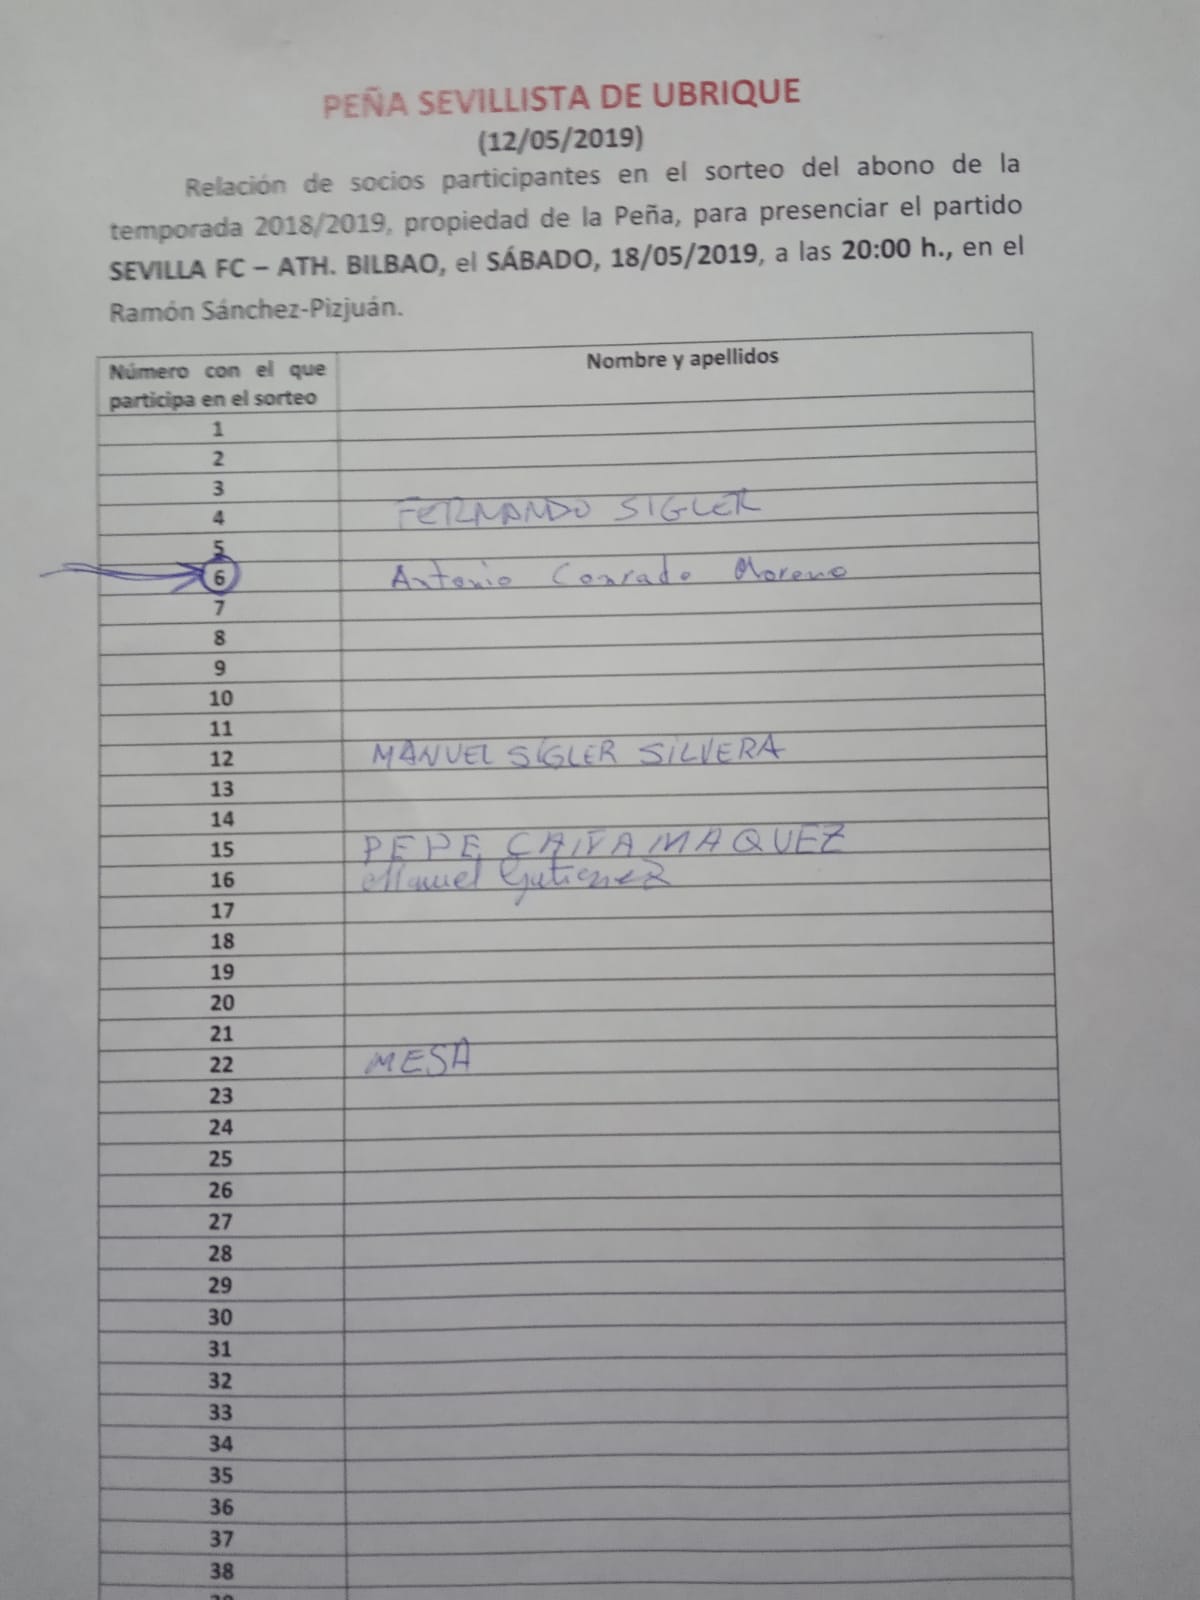 PEÑA SEVILLISTA DE UBRIQUE
(12/05/2019)
Relación de socios participantes en el sorteo del abono de la
temporada 2018/2019, propiedad de la Peña, para presenciar el partido
SEVILLA FC – ATH. BILBAO, el SÁBADO, 18/05/2019, a las 20:00 h., en el
Ramón Sánchez-Pizjuán.
Número con el que participa en el sorteo Nombre y apellidos
1
2
3
4 FERNANDO SIGLER
5
6 Antonio Conrado Moreno
7
8
9
10
11
12 MANUEL SIGLER SILVERA
13
14
15 PEPE MAQUEZ
16 Manuel Gutierrez
17
18
19
20
21
22 MESA
23
24
25
26
27
28
29
30
31
32
33
34
35
36
37
38